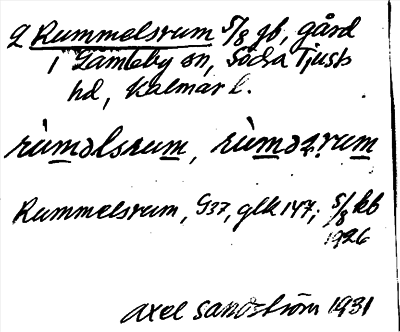 2 Rummelsrum 5/8 gb, gård
i Gamleby sn, Södra Tjusts
hd, Kalmar l.
rùməlsrum, rùməʐrum
Rummelsrum, G37, glk 147; 5/8 kb
1926
Axel Sandström 1931